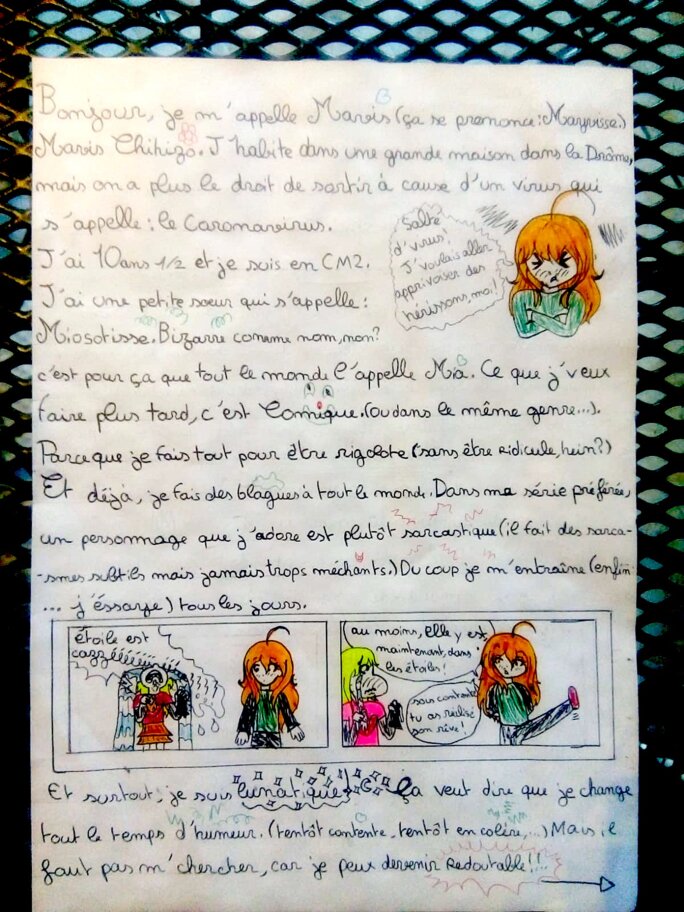 Bonjour, je m'appelle Mavis (ça se prononce: Mayvisse.)
Mavis Chihizo. J'habite dans une grande maison dans la Drôme,
mais on a plus le droit de sortir à cause d'un virus qui
s'appelle: le Caronavirus.
Salté
d'virus!
J'voulais aller
apprivoiser des
hérissons, moi!
J'ai 10ans 1/2 et je suis en CM2.
J'ai une petite soeur qui s'appelle:
Miosotisse. Bizarre comme nom, non?
c'est pour ça que tout le monde l'appelle Mia. Ce que j'veux
faire plus tard, c'est Comique. (ou dans le même genre...).
Parce que je fais tout pour être rigolote (sans être ridicule, hein?)
Et déjà, je fais des blagues à tout le monde. Dans ma série préférée,
un personnage que j'adore est plutôt sarcastique (il fait des sarca-
-smes subtils mais jamais trops méchants.) Du coup je m'entraîne (enfin
... j'éssaye) tous les jours.
étoile est
au moins, elle y est
maintenant, dans
les étoiles!
sois contente
tu as réalisé
son rêve!
Et surtout, je suis lunatique! Ça veut dire que je change
tout le temps d'humeur. (tentôt contente, tentôt en colère,...) Mais, il
faut pas m'chercher, car je peux devenir Redoutable!!..